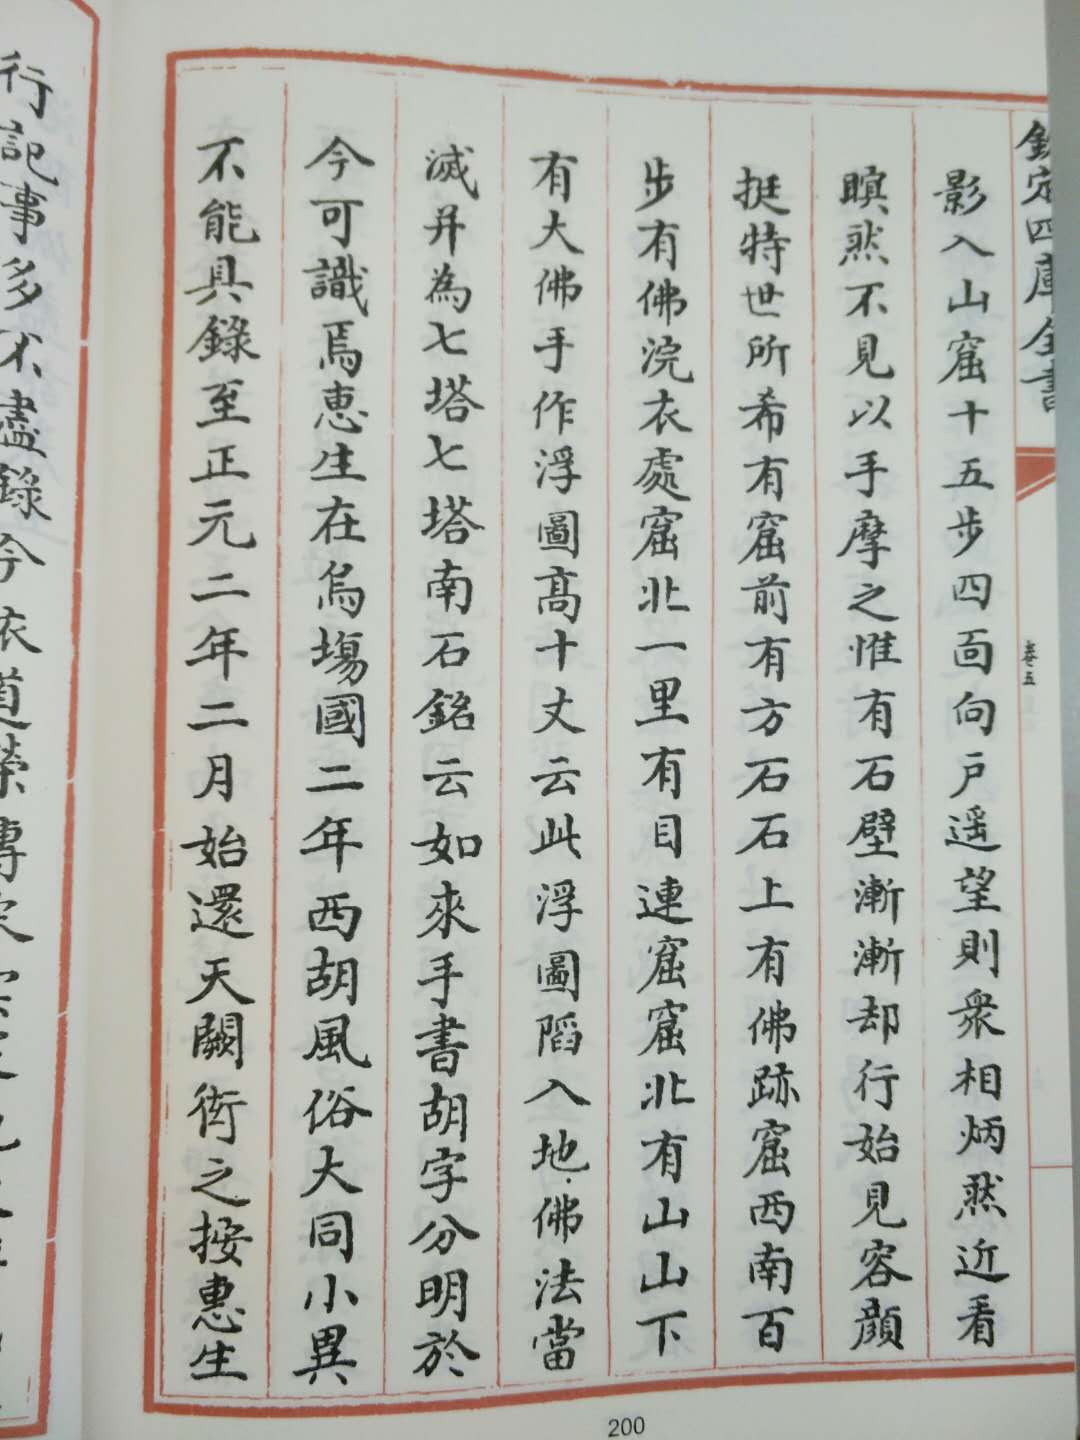 欽定四庫全書
卷五
影入山窟十五步四面向戶遥望則衆相炳然近看
瞑然不見以手摩之惟有石壁漸漸却行始見容顔
挺特世所希有窟前有方石石上有佛跡窟西南百
步有佛浣衣處窟北一里有目連窟窟北有山山下
有大佛手作浮圖髙十丈云此浮圖䧟入地佛法當
滅并為七塔七塔南石銘云如來手書胡字分明於
今可識焉惠生在烏塲國二年西胡風俗大同小異
不能具錄至正元二年二月始還天闕衒之按惠生
行記事多不盡錄今依道榮傳宋
200